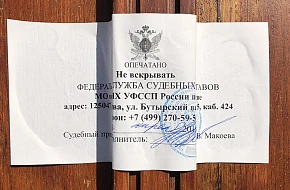 ОПЕЧАТАНО
Не вскрывать
ФЕДЕРА СЛУЖБА СУДЕБНЫХ АВОВ
УФССП России
адрес: 12504 ва, ул. Бутырский каб. 424
он: +7 (499) 270-59-5
201
Судебный при олнитель: В. Макоева